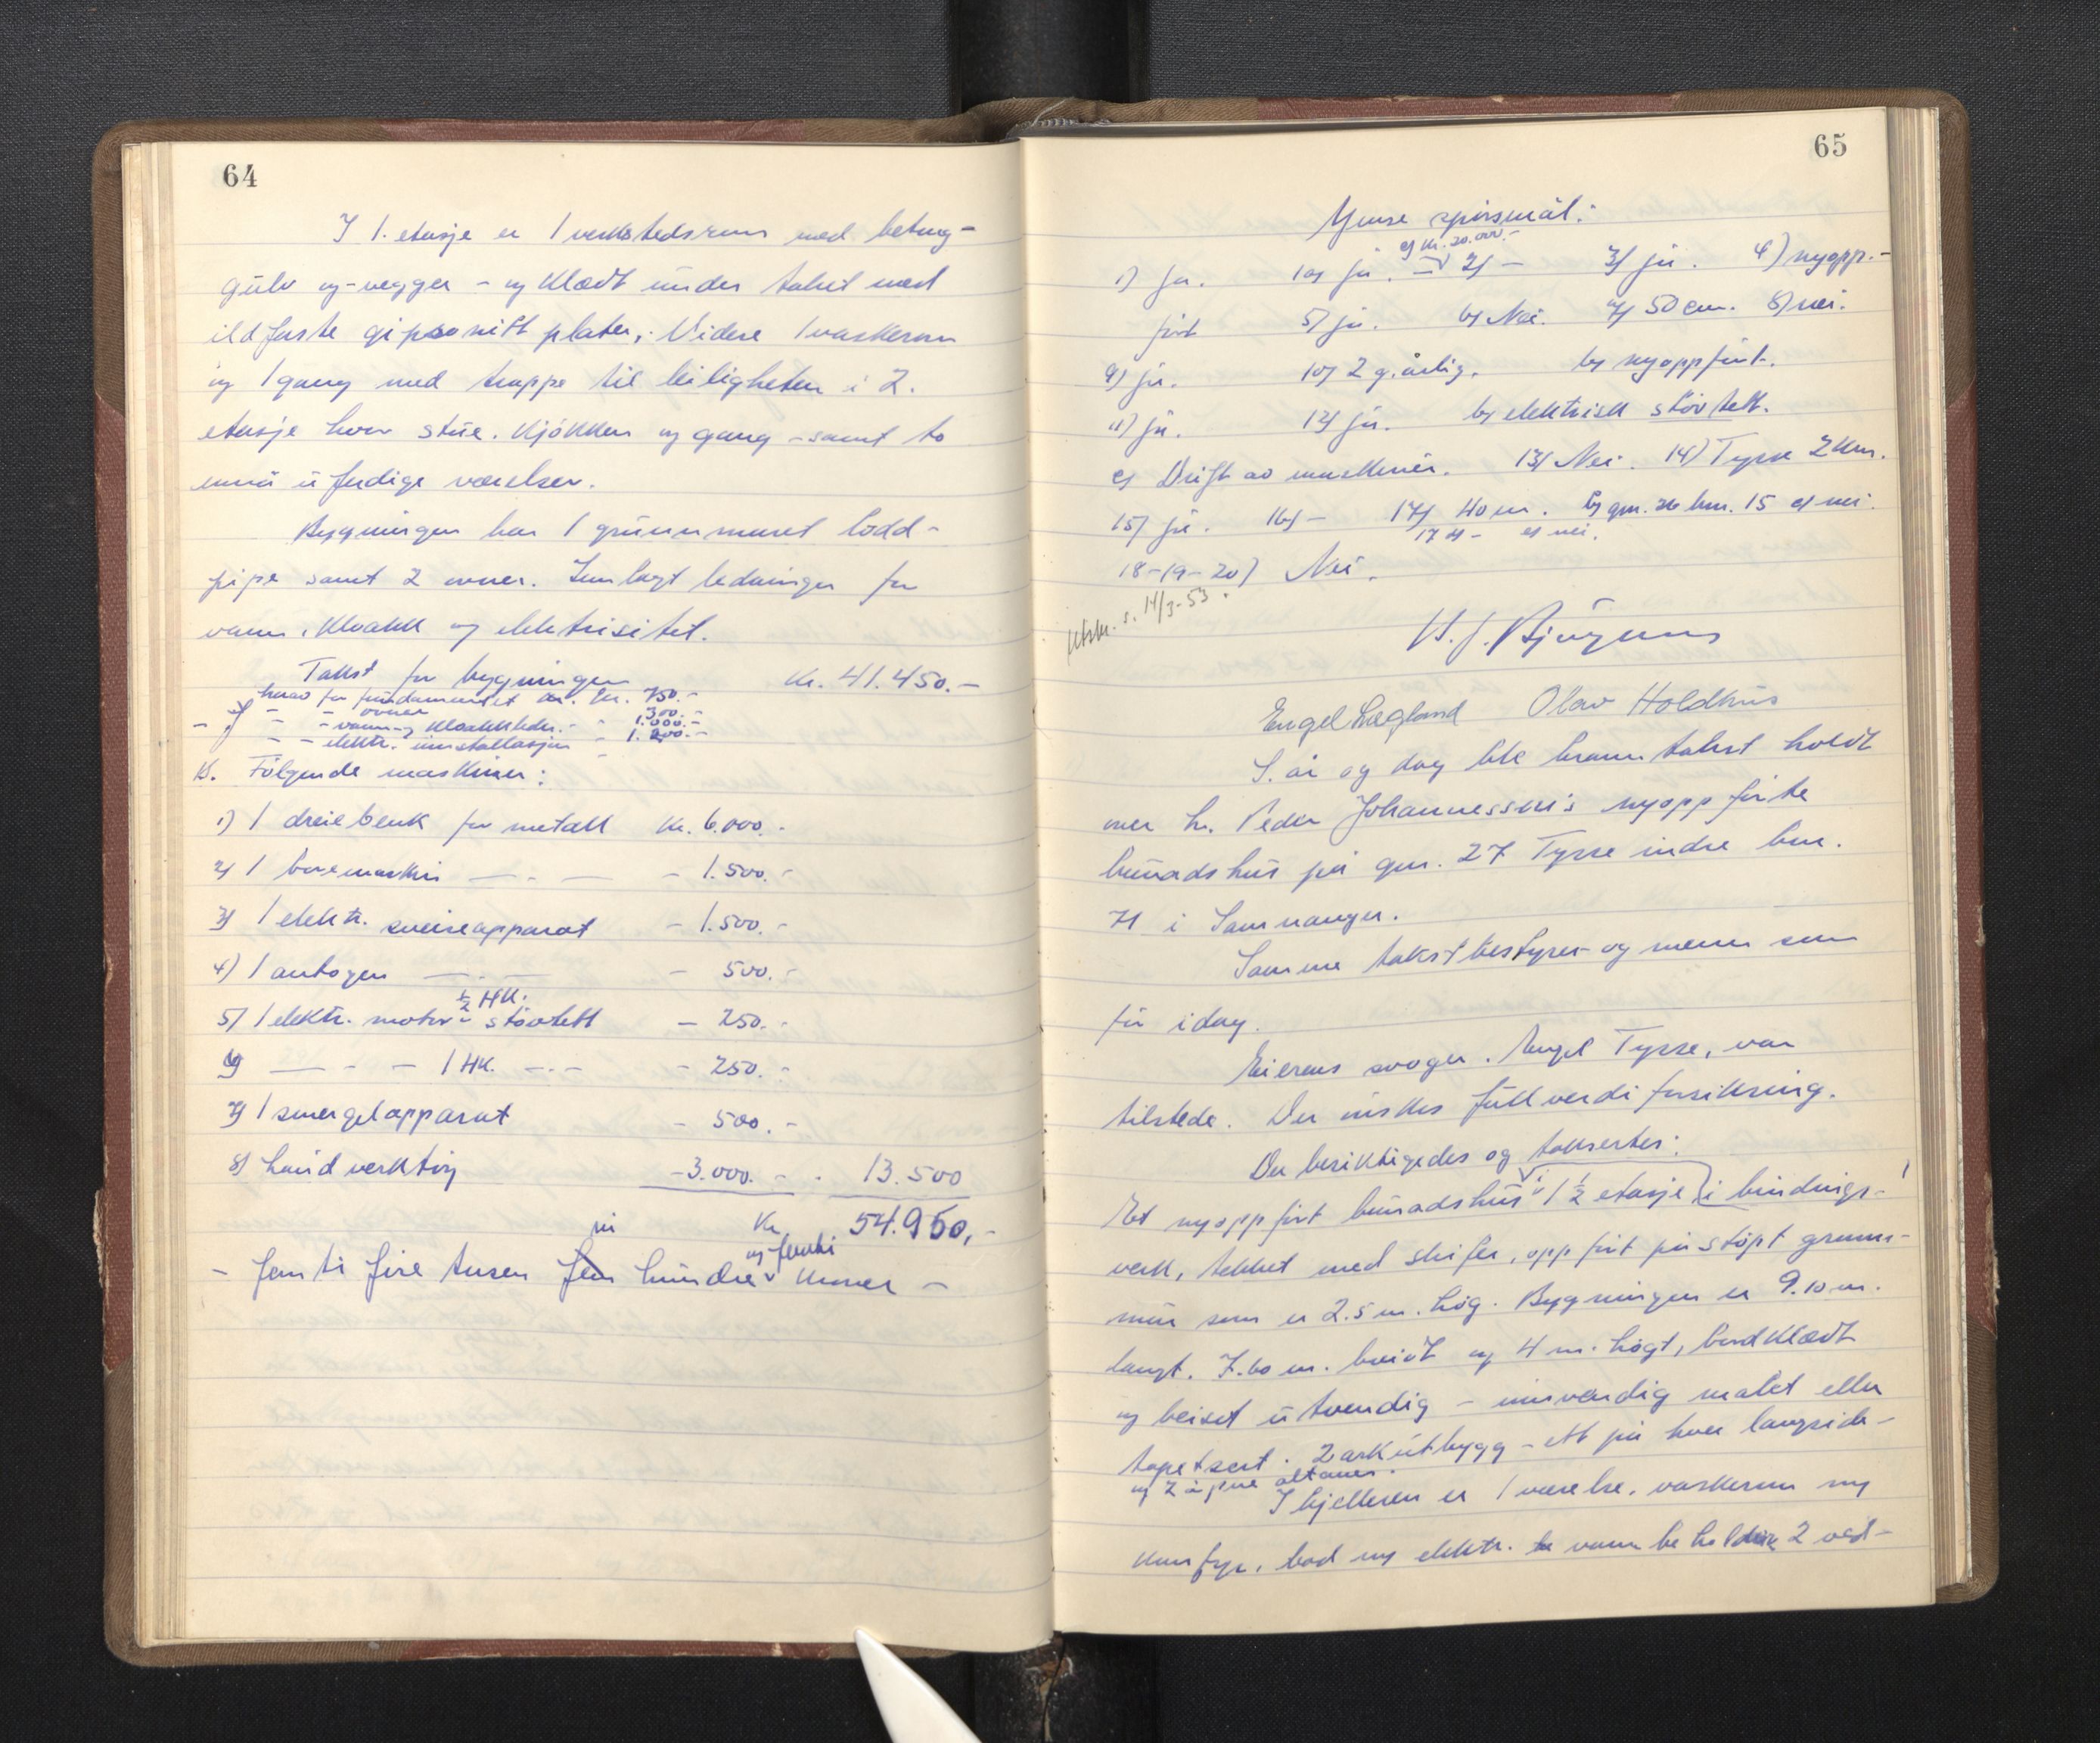 64
I 1. etasje er 1 verkstedsrum med betong-
gulv og -vegger - og klædt under taket med
ildfaste gipsonitt plater. Videre 1 vaskerum
og 1 gang med trappe til leiligheten i 2.
etasje hvor stue, kjøkken og gang - samt to
ennå uferdige værelser.
Bygningen har 1 grunnmuret lodd-
pipe samt 2 ovner. Innlagt ledninger for
vann, kloakk og elektrisitet.
Takst for bygningen Kr. 41.450.-
herav for fundamentet Kr. 750.-
- " - - ovner 300.-
- " - - vann- og kloakkledn. - - 1.000.-
- - elektr. installasjon - 1.200.-
B. Følgende maskiner:
1) 1 dreiebenk for metall Kr. 6.000.-
2) 1 boremaskin — - — - 1.500.-
3) 1 elektr. sveiseapparat - 1.500.-
4) 1 autogen — - — - 500.-
½ HK.
5) 1 elektr. motor - støvtett - 250.-
6) — - - 1 HK. - - - - 250.-
7) 1 smergelapparat - 500.-
8) handverktøy - 3.000.- . 13.500
Kr 54.950,-
ni og femti
- Femti fire tusen fem hundre kroner -
65
Ymse spørsmål:
c) Kr. 20.000.-
1) Ja. 1a) ja. - 2) - 3) ja. 4) nyopp.-
ført 5) ja. 6) Nei. 7) 50 cm. 8) nei.
9) ja. 10) 2 g. årlig. b) nyoppført.
11) ja. 12) ja. b) elektrisk støvtett.
c) Drift av maskiner. 13) Nei. 14) Tysse 2 km.
15) ja. 16) - 17) 40 m. b) gnr. 26 bnr. 15 c) nei.
17 d - e) nei.
18-19-20) Nei.
Utskr. s. 14/3-53.
Engel Lægland Olav Holdhus
S. år og dag ble branntakst holdt
over hr. Peder Johannessen's nyoppførte
bunadshus på gnr. 27 Tysse indre bnr.
71 i Samnanger.
Samme takstbestyrer og menn som
før idag.
Eierens svoger, Engel Tysse, var
tilstede. Der ønskes fullverdiforsikring.
Der besiktigedes og taksertes:
Et nyoppført bunadshus i 1 ½ etasje i bindings-
verk, tekket med skifer, oppført på støpt grunn-
mur som er 2.5 m. høg. Bygningen er 9.10 m.
langt, 7.60 m. breidt og 4 m. høgt, bordklædt
og beiset utvendig - innvendig malet eller
tapetsert. 2 arkutbygg - ett på hver langside -
og 2 åpne altaner.
I kjelleren er 1 værelse, vaskerum m/
komfyr, bad m/ elektr. vannbeholder, 2 ved-